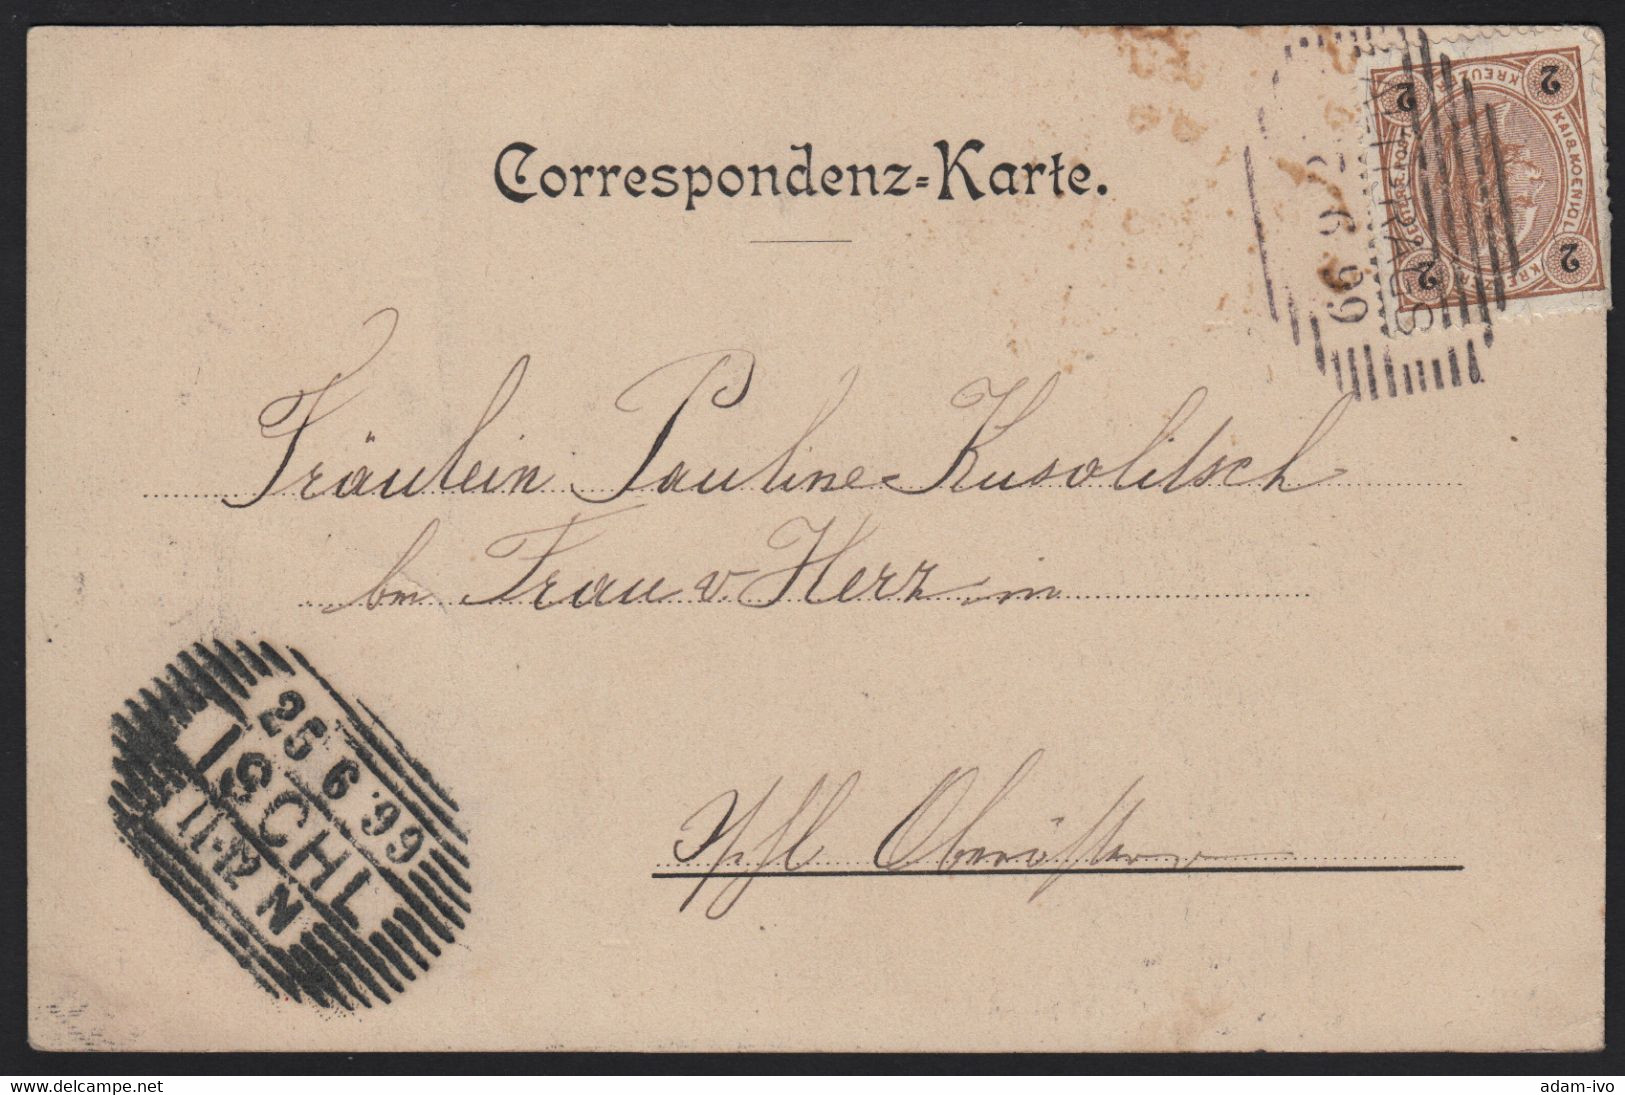 Correspondenz=Karte.
KAIS. KOENIGL.
OESTERR. POST
KREUZER
KREUZER
2 2
2 2
6 99
Fräulein Pauline Kusolitsch
bm Frau v Herz in
25 6 99
ISCHL
11-12 N
Ischl Oberöster
delcampe.net
adam-ivo